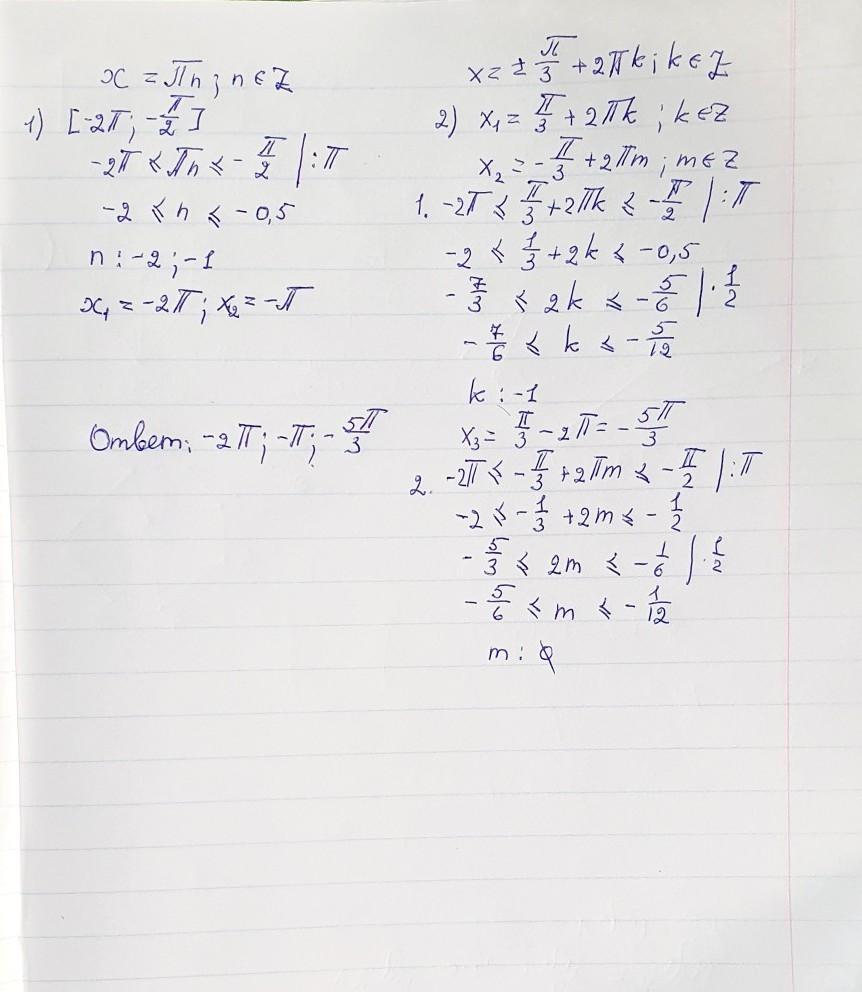 x = πn ; n ∈ Z
1) [-2π ; -π/2]
-2π ⩽ πn ⩽ -π/2 | : π
-2 ⩽ n ⩽ -0,5
n : -2 ; -1
x₁ = -2π ; x₂ = -π
Ответ: -2π ; -π ; -5π/3
x = ± π/3 + 2πk ; k ∈ Z
2) x₁ = π/3 + 2πk ; k ∈ Z
x₂ = -π/3 + 2πm ; m ∈ Z
1. -2π ⩽ π/3 + 2πk ⩽ -π/2 | : π
-2 ⩽ 1/3 + 2k ⩽ -0,5
-7/3 ⩽ 2k ⩽ -5/6 | · 1/2
-7/6 ⩽ k ⩽ -5/12
k : -1
x₃ = π/3 - 2π = -5π/3
2. -2π ⩽ -π/3 + 2πm ⩽ -π/2 | : π
-2 ⩽ -1/3 + 2m ⩽ -1/2
-5/3 ⩽ 2m ⩽ -1/6 | · 1/2
-5/6 ⩽ m ⩽ -1/12
m : ∅